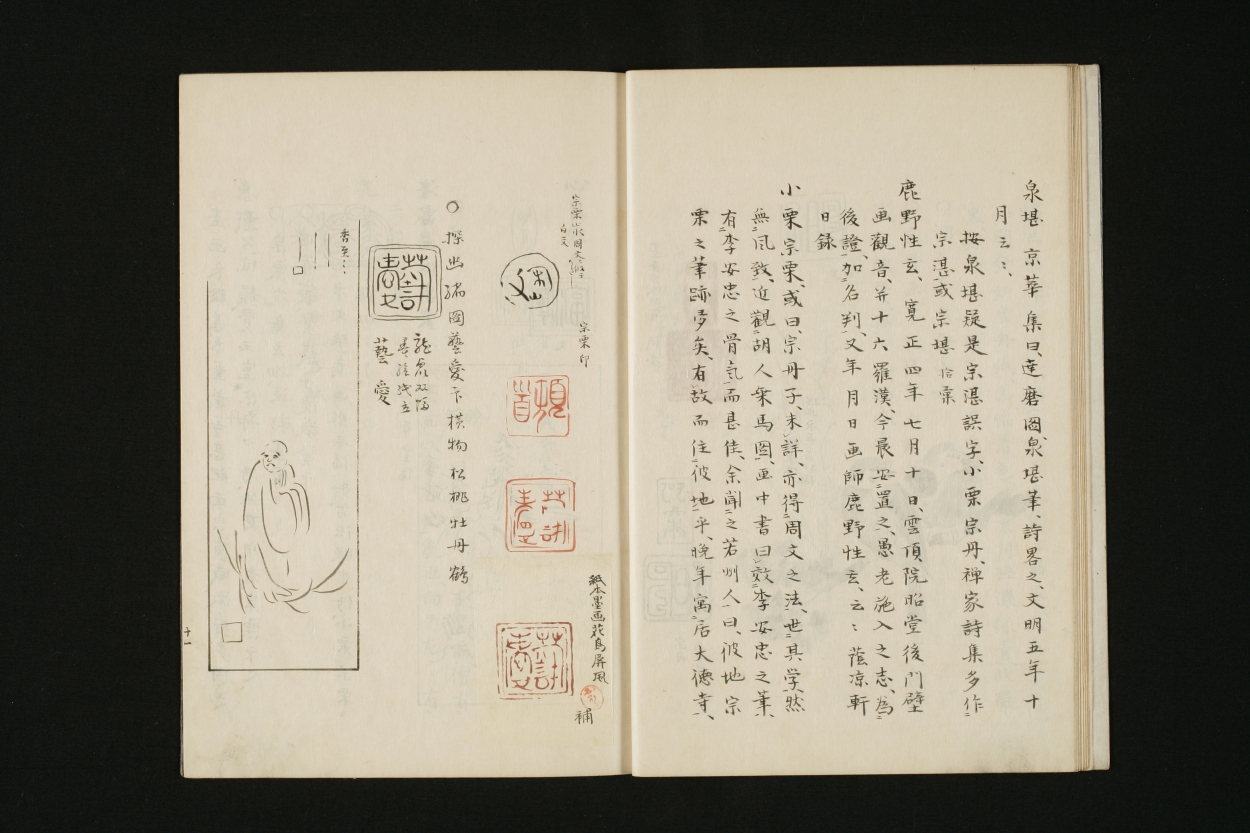 泉堪 京華集曰、達磨図、泉堪筆、詩畧之、文明五年十
月云〻、
按泉堪疑是宗湛誤字、小栗宗丹、禅家詩集多作
宗湛或宗堪
鹿野性玄、寛正四年七月十日、雲頂院昭堂後門壁
画観音、并十六羅漢、今晨安置之、愚老施入之志、為
後證、加名判、又年月日画師鹿野性玄、云〻蔭凉軒
日録
小栗宗栗、或曰、宗丹子、未詳、亦得周文之法、世其学、然
無風致、近観胡人乗馬図、画中書曰效李安忠之筆、
有李安忠之骨気、而甚佳、余聞之若州人曰、彼地宗
栗之筆跡多矣、有故而住彼地乎、晩年寓居大徳寺、
宗栗印
白文
紙本墨画花鳥屏風
補
○探幽縮図藝愛下横物松桃牡丹鶴
龍虎双幅
藝愛
十一